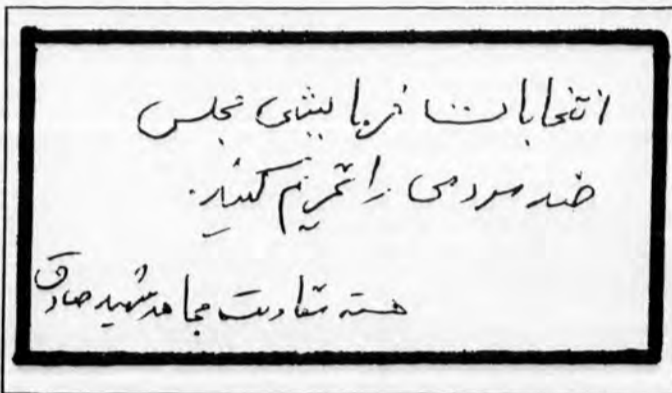 انتخابات فرمایشی مجلس
ضد مردمی را تحریم کنید.
هسته مقاومت مجاهد شهید صادق